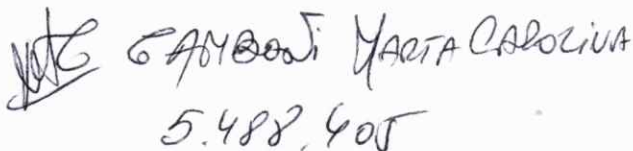 GAMBONI MARTA CAROLINA
5.488.405